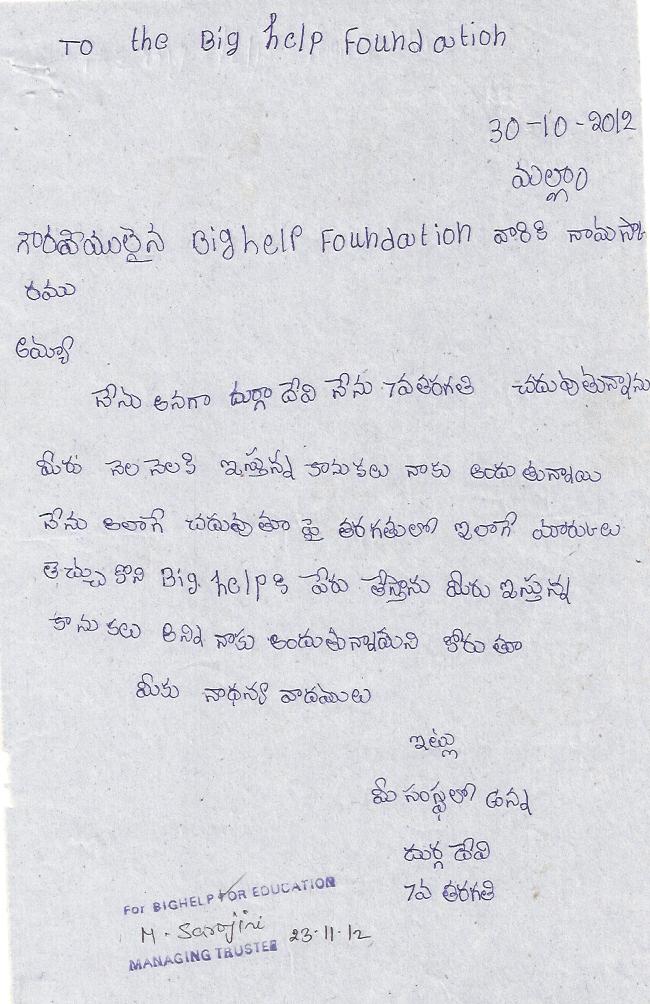 To the Big help Foundation
30-10-2012
మల్లాం
గారవయులైన Big help Foundation వారికి నామస్కా
రము
అమ్మా
నేను అనగా దుర్గా దేవి నేను 7వతరగతి చదువుతున్నాను
మీరు నెల నెలకి ఇస్తున్న కానుకలు నాకు అందుతున్నాయి
నేను అలాగే చదువుతూ పై తరగతులలో ఇలాగే మారుకులు
తెచ్చుకొని Big helpకి పేరు తేస్తాను మీరు ఇస్తున్న
కానుకలు అన్ని నాకు అందుతున్నాయని కోరుతూ
మీకు నాధన్య వాదములు
ఇట్లు
మీ సంస్థలో ఉన్న
దుర్గ దేవి
7వ తరగతి
For BIGHELP FOR EDUCATION
M. Sarojini 23-11-12
MANAGING TRUSTEE